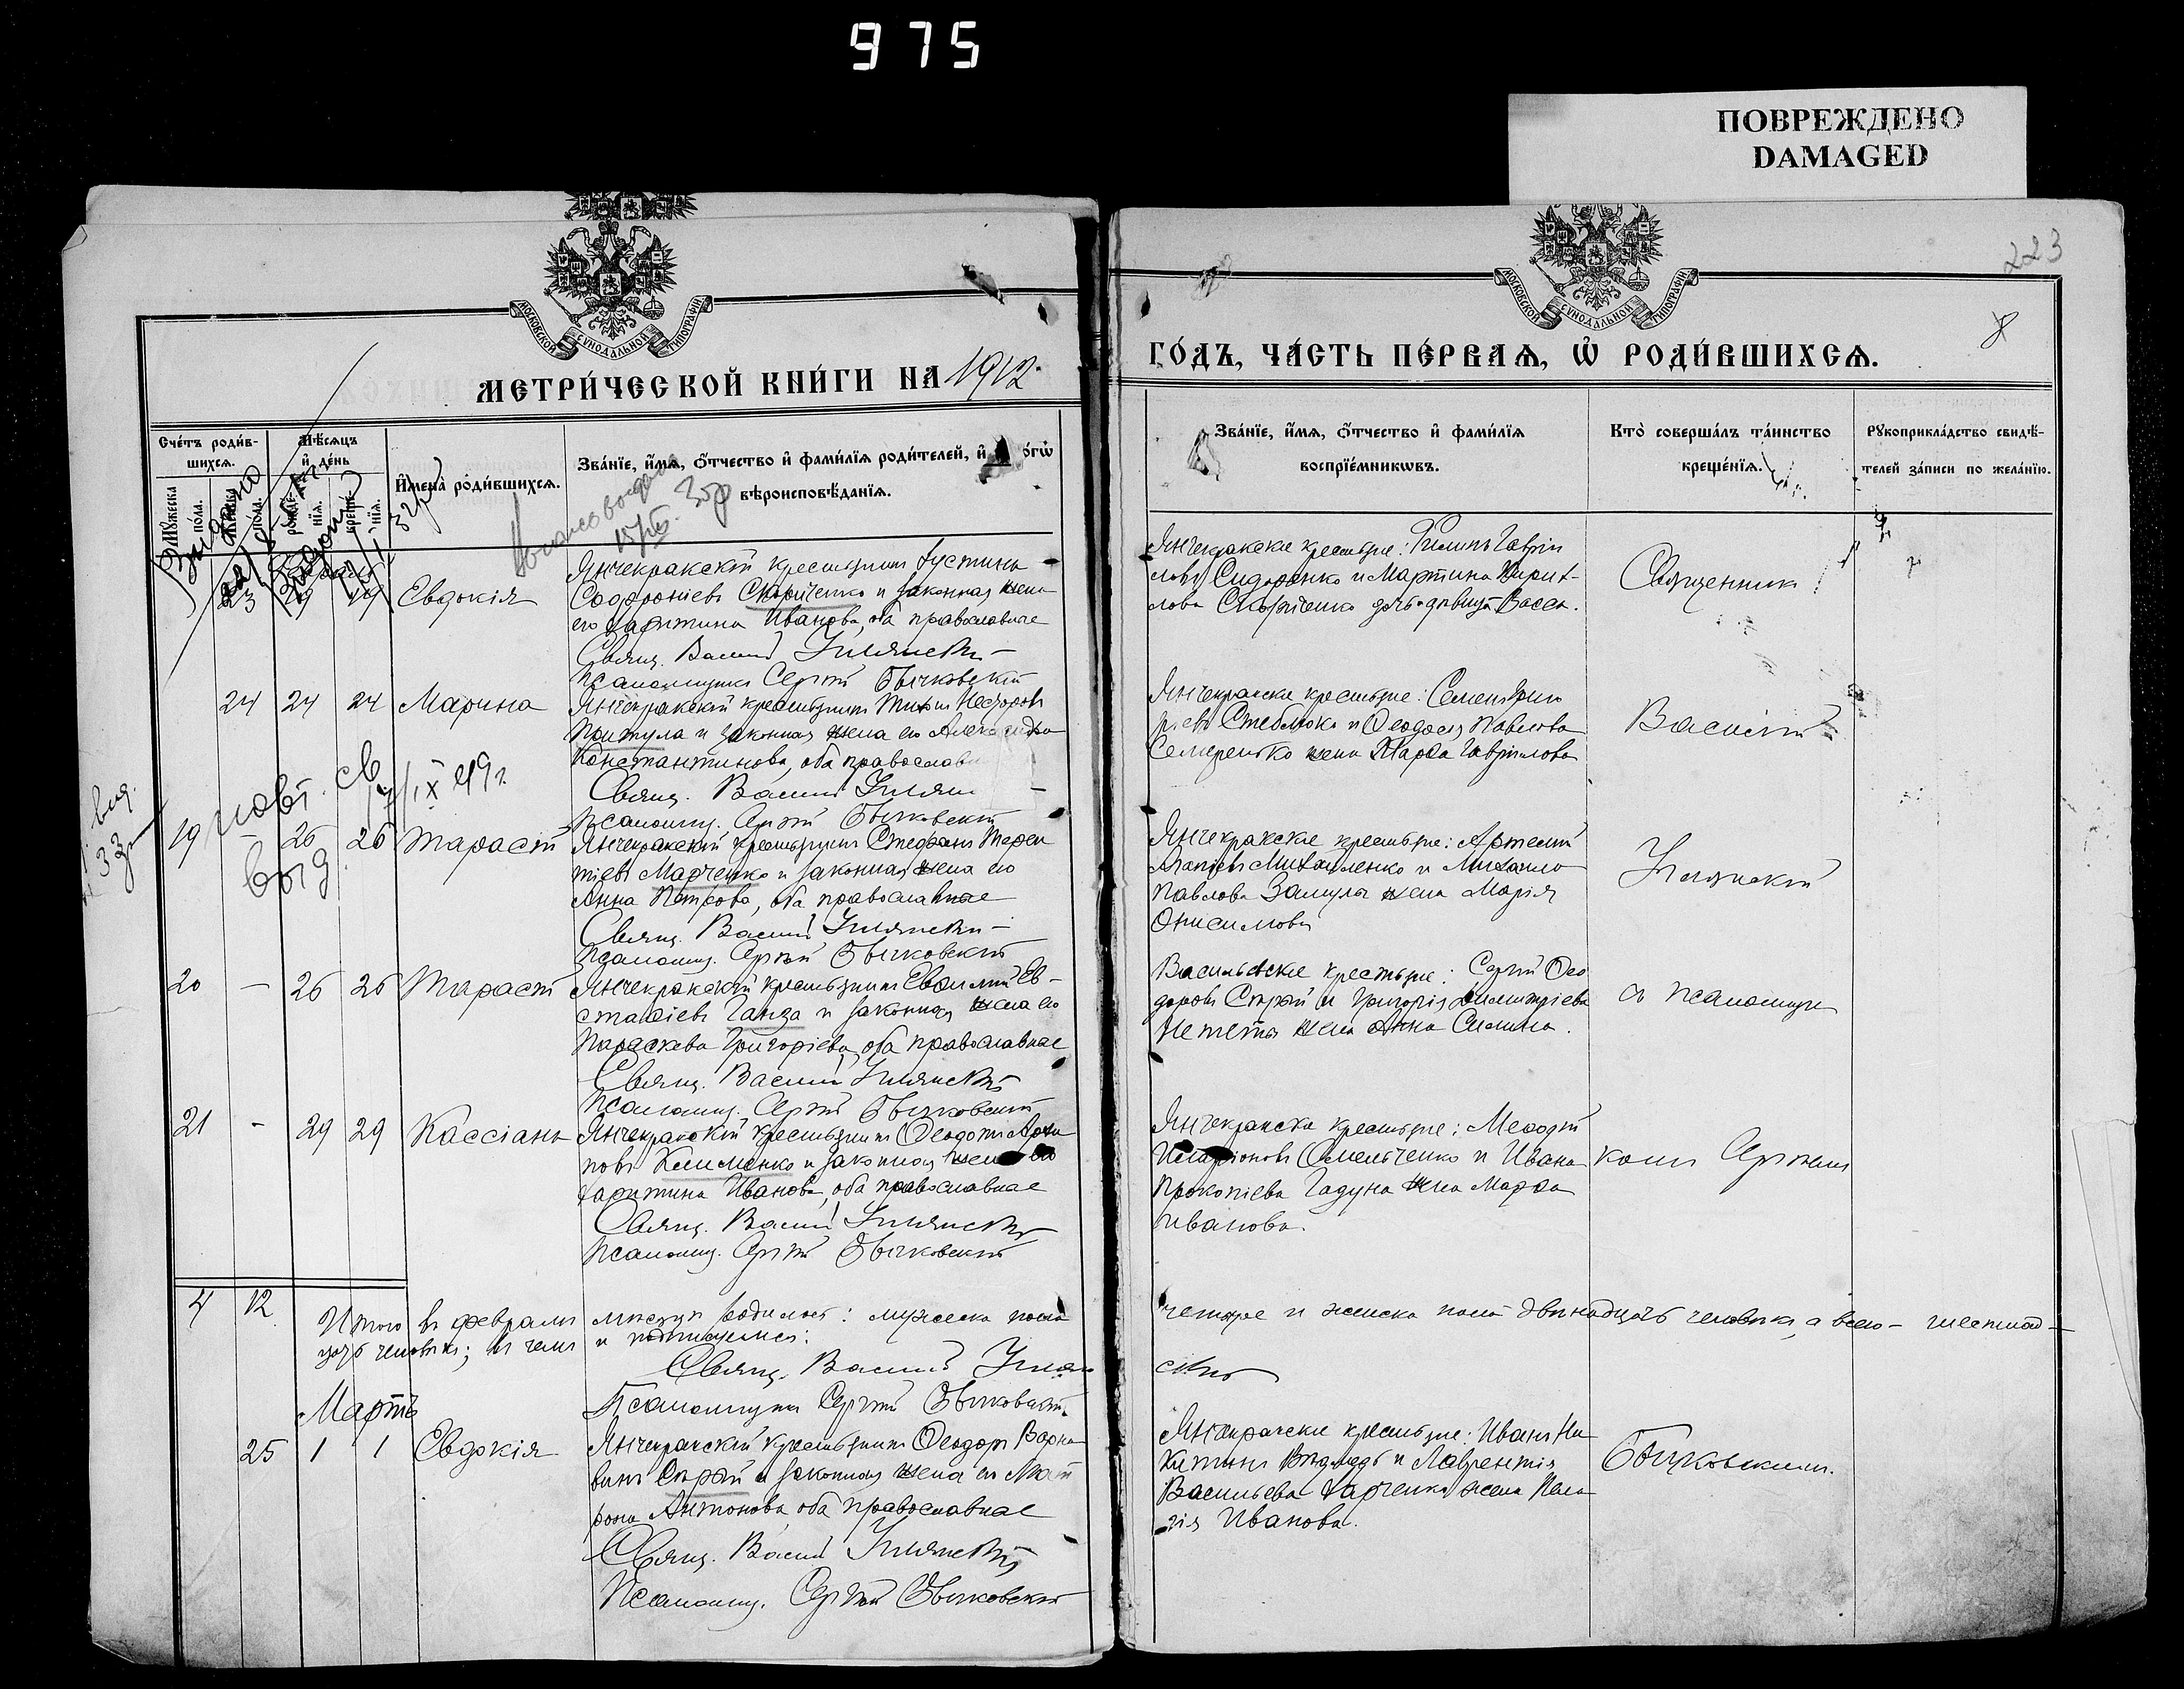 975
ПОВРЕЖДЕНО
DAMAGED
223
8
МОСКОВСКОЙ СУНОДАЛЬНОЙ ТИПОГРАФІИ
МОСКОВСКОЙ СУНОДАЛЬНОЙ ТИПОГРАФІИ
МЕТРИ́ЧЕСКОЙ КНИ́ГИ НА 1912
ГО́ДЪ, ЧА́СТЬ ПЕ́РВАѦ, Ѡ҆ РОДИ́ВШИХСѦ.
Сче́тъ роди́в-
шихсѧ.
Мѣ́сѧцъ
и҆ де́нь
Мꙋ́жеска по́ла.
Же́нска по́ла.
рожде́-
нїѧ.
креще́-
нїѧ.
И҆мена̀ роди́вшихсѧ.
Зва́нїе, и҆́мѧ, ѻ҆́тчество и҆ фами́лїѧ роди́телей, и҆
вѣроисповѣ́данїѧ.
Зва́нїе, и҆́мѧ, ѻ҆́тчество и҆ фами́лїѧ
воспрїе́мникѡвъ.
Кто̀ соверша́лъ та́инство
креще́нїѧ.
Рꙋкоприкла́дство свидѣ́-
телей за́писи по жела́нїю.
Выдано
23 29 29 Евдокія
Янчекракскій крестьянинъ Іустинъ
Софроніевъ Скориченко и законная жена
его Харитина Иванова, оба православные
Свящ. Василій Ильянскій
Псаломщикъ Сергій Бычковскій
Янчекракскіе крестьяне: Филипъ Гаврі
ловъ Сидоренко и Мартина Кирил-
лова Скориченко дочь-дѣвица Васса.
Священникъ
24 24 24 Марина
Янчекракскій крестьянинъ Тихонъ Несторовъ
Притула и законная жена его Александра
Константинова, оба православн
Свящ. Василій Ильян
Псаломщ. Сергій Бычковскій
Янчекракскіе крестьяне: Семенъ Григо
ріевъ Стеблюко и Ѳеодосія Павлова
Семеренко жена Марѳа Гаврилова
Василій
повт. св
IX 49 г.
выд
выд.
33
19 - 26 26 Тарасій
Янчекракскій крестьянинъ Стефанъ Терен
тіевъ Марченко и законная жена его
Анна Петрова, оба православные
Свящ. Василій Ильянскій
Псаломщ. Сергій Бычковскій
Янчекракскіе крестьяне: Артемій
Агапіевъ Михайленко и Михаила
Павлова Замула жена Марія
Онисимова
Ильянскій
20 - 26 26 Тарасій
Янчекракскій крестьянинъ Евфимій Ев-
стафіевъ Ганза и законная жена его
Параскева Григоріева, оба православные
Свящ. Василій Ильянскій
Псаломщ. Сергій Бычковскій
Васильевскіе крестьяне: Сергій Ѳео
доровъ Сѣрый и Григорія Димитріева
жена Анна Силина.
съ псаломщи
21 - 29 29 Кассіанъ
Янчекракскій крестьянинъ Ѳеодотъ Архи
повъ Клименко и законная жена его
Харитина Иванова, оба православные
Свящ. Василій Ильянскій
Псаломщ. Сергій Бычковскій
Янчекракскіе крестьяне: Меѳодій
Иларіоновъ Омельченко и Ивана
Прокопіева Гадуна жена Марѳа
Иванова.
комъ Сергіемъ
4 12
Итого въ февралѣ мѣсяцѣ родилось: мужеска пола четыре и женска пола двѣнадцать человѣкъ, а всего - шестнад-
цать человѣкъ; въ чемъ и подписуемся:
Свящ. Василій Ильян скій
Псаломщикъ Сергій Бычковскій
Мартъ
25 1 1 Евдокія
Янчекракскій крестьянинъ Ѳеодоръ Варна
винъ Сѣрый и законная жена его Мат
рона Антонова, оба православные
Свящ. Василій Ильянскій
Псаломщ. Сергій Бычковскій
Янчекракскіе крестьяне: Иванъ Ни
китинъ и Лаврентія
Васильева Харченко жена Пела
гія Иванова.
Бычковскимъ.